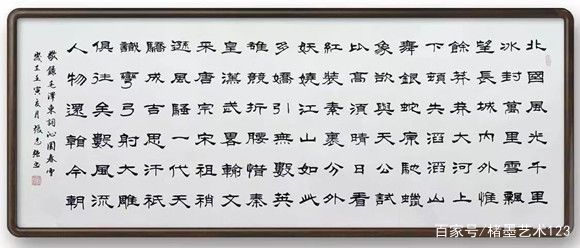 北國風光千里
冰封萬里雪飄
望長城內外惟
餘莽莽大河上
下頓失滔滔山
舞銀蛇原馳蠟
象欲與天公試
比高須晴日看
紅裝素裹分外
妖嬈江山如此
多嬌引無數英
雄競折腰惜秦
皇漢武略輸文
采唐宗宋祖稍
遜風騷一代天
驕成吉思汗祇
識彎弓射大雕
俱往矣數風流
人物還看今朝
敬錄毛澤東詞沁園春雪
歲在壬寅亥月張志強書
百家号/楮墨艺术123